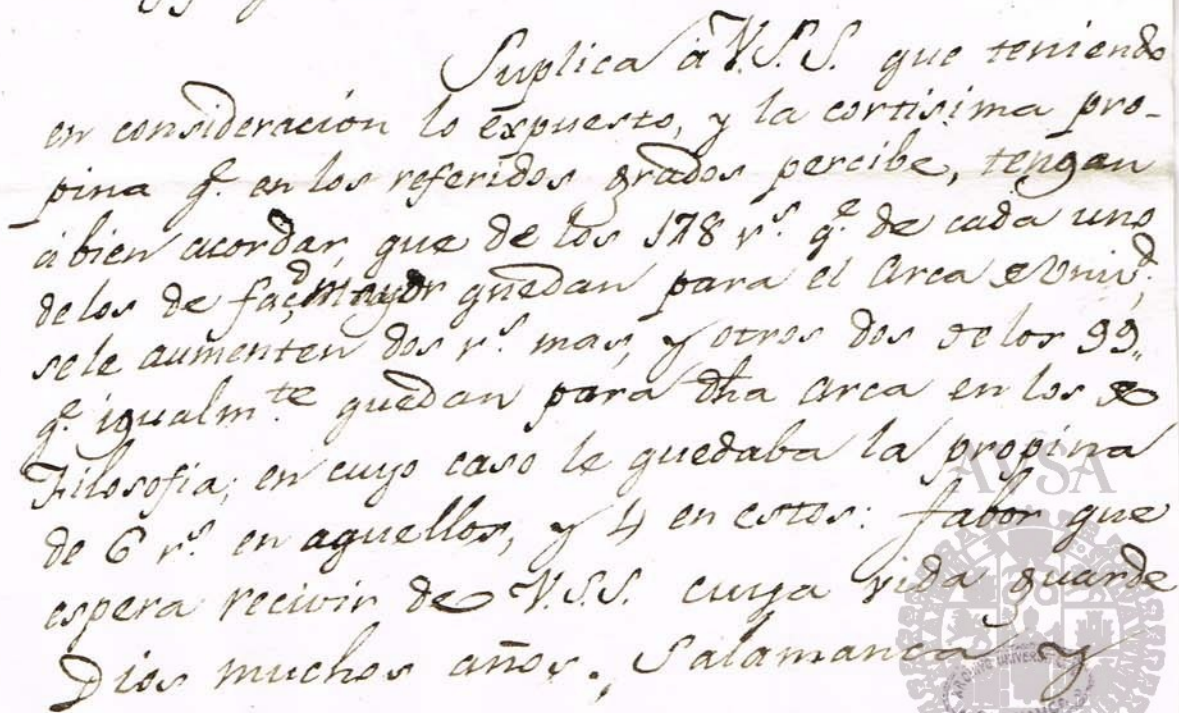 Suplica à V.S.S. que teniendo
en consideracion lo expuesto, y la cortisima pro-
pina q.e en los referidos grados percibe, tengan
à bien acordar, que de los 178 r.s q.e de cada uno
de los de fac.d mayor quedan para el Arca de Univ.d,
se le aumenten dos r.s mas, y otros dos de los 99,,
q.e igualm.te quedan para dha Arca en los de
Filosofia; en cuyo caso le quedaba la propina
de 6 r.s en aquellos, y 4 en estos: fabor que
espera recivir de V.S.S. cuya vida guarde
Dios muchos años. Salamanca y
AUSA